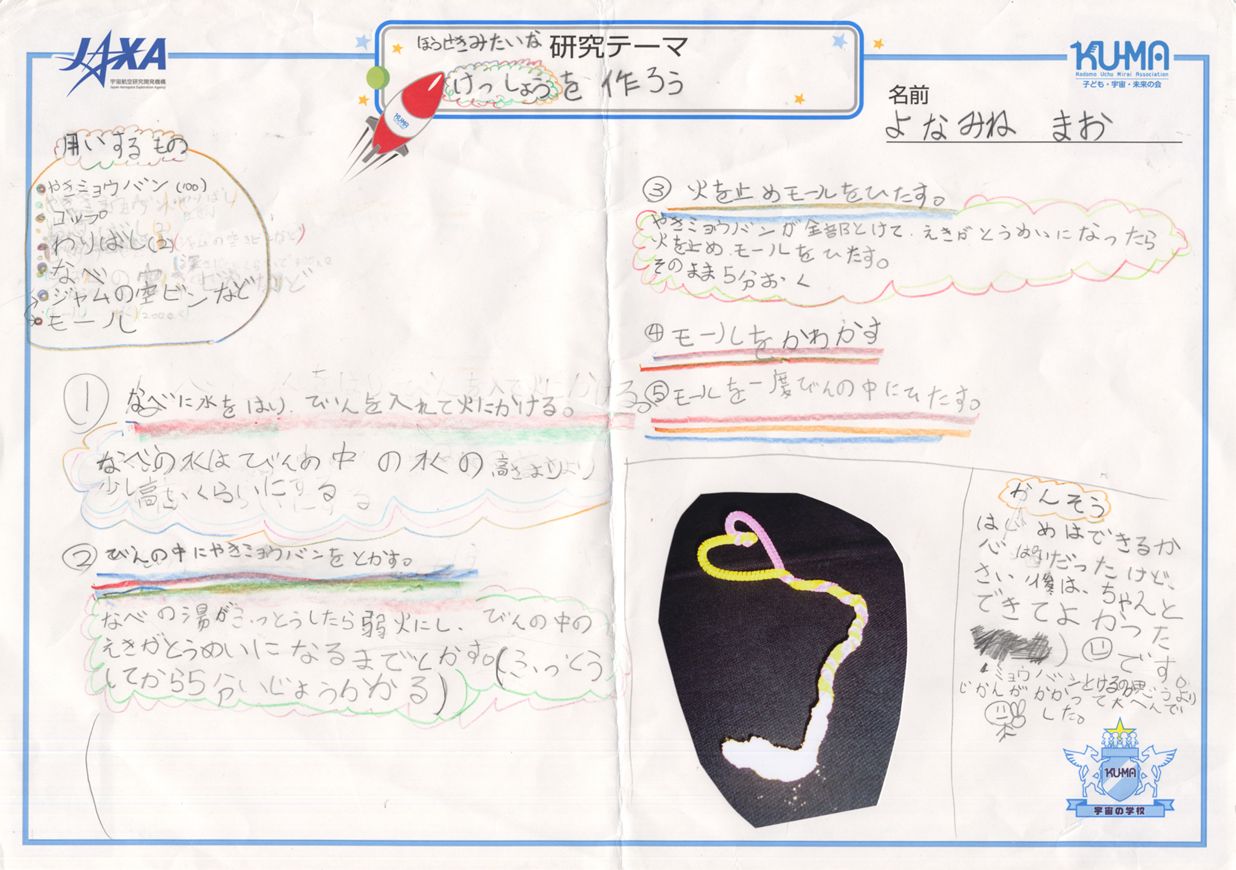 JAXA
宇宙航空研究開発機構
Japan Aerospace Exploration Agency
ほうせきみたいな 研究テーマ
けっしょうを 作ろう
KUMA
KU-MA
Kodomo Uchu Mirai Association
子ども・宇宙・未来の会
名前
よなみね まお
用いするもの
やきミョウバン(100)
コップ
わりばし(2)
なべ
ジャムの空ビンなど
モール
① なべに水をはり、びんを入れて火にかける。
なべの水はびんの中の水の高さより
少し高いくらいにする
② びんの中にやきミョウバンをとかす。
なべの湯がふっとうしたら弱火にし、びんの中の
えきがとうめいになるまでとかす。(ふっとう
してから5分いじょうかかる)
③ 火を止めモールをひたす。
やきミョウバンが全部とけて、えきがとうめいになったら
火を止め、モールをひたす。
そのまま5分おく
④ モールをかわかす
⑤ モールを一度びんの中にひたす。
かんそう
はじめはできるか
心ぱいだったけど、
さい後は、ちゃんと
できてよかった
です。
ミョウバンとけるのが思うより
じかんがかかって大へんで
した。
KUMA
宇宙の学校